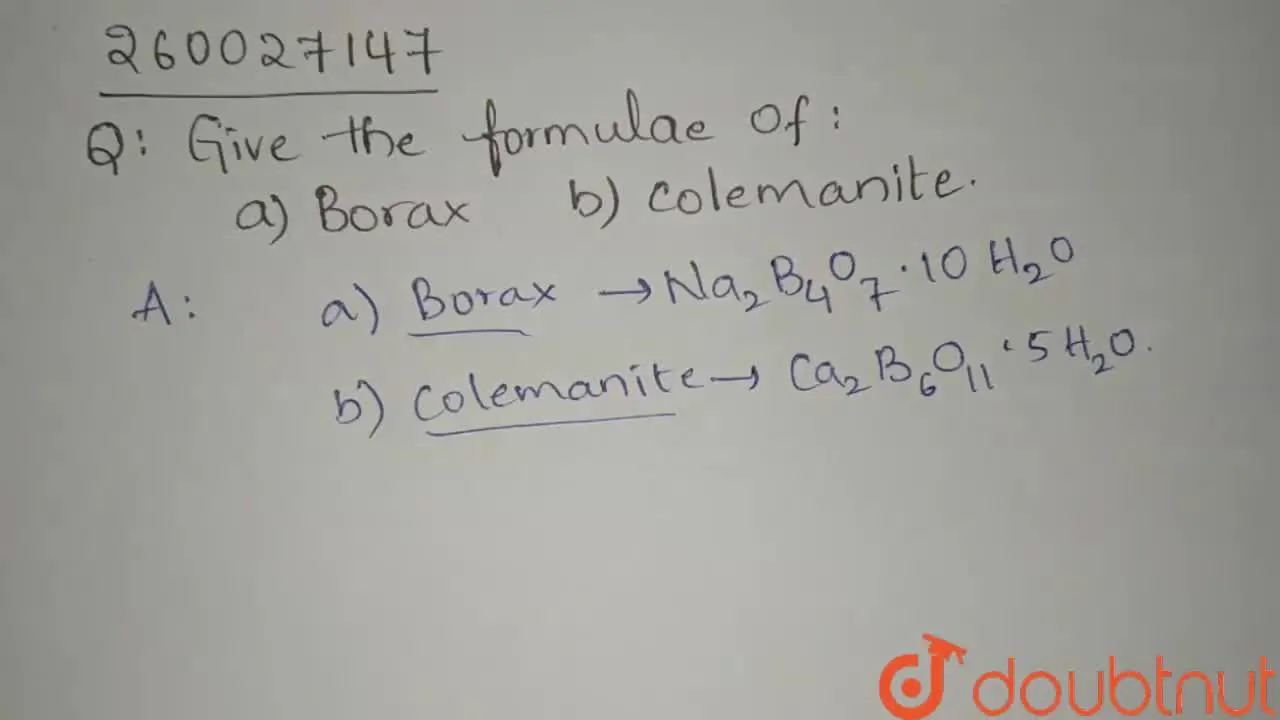 260027147
Q: Give the formulae of:
a) Borax b) Colemanite.
A: a) Borax → Na₂B₄O₇·10 H₂O
b) Colemanite → Ca₂B₆O₁₁·5H₂O.
doubtnut